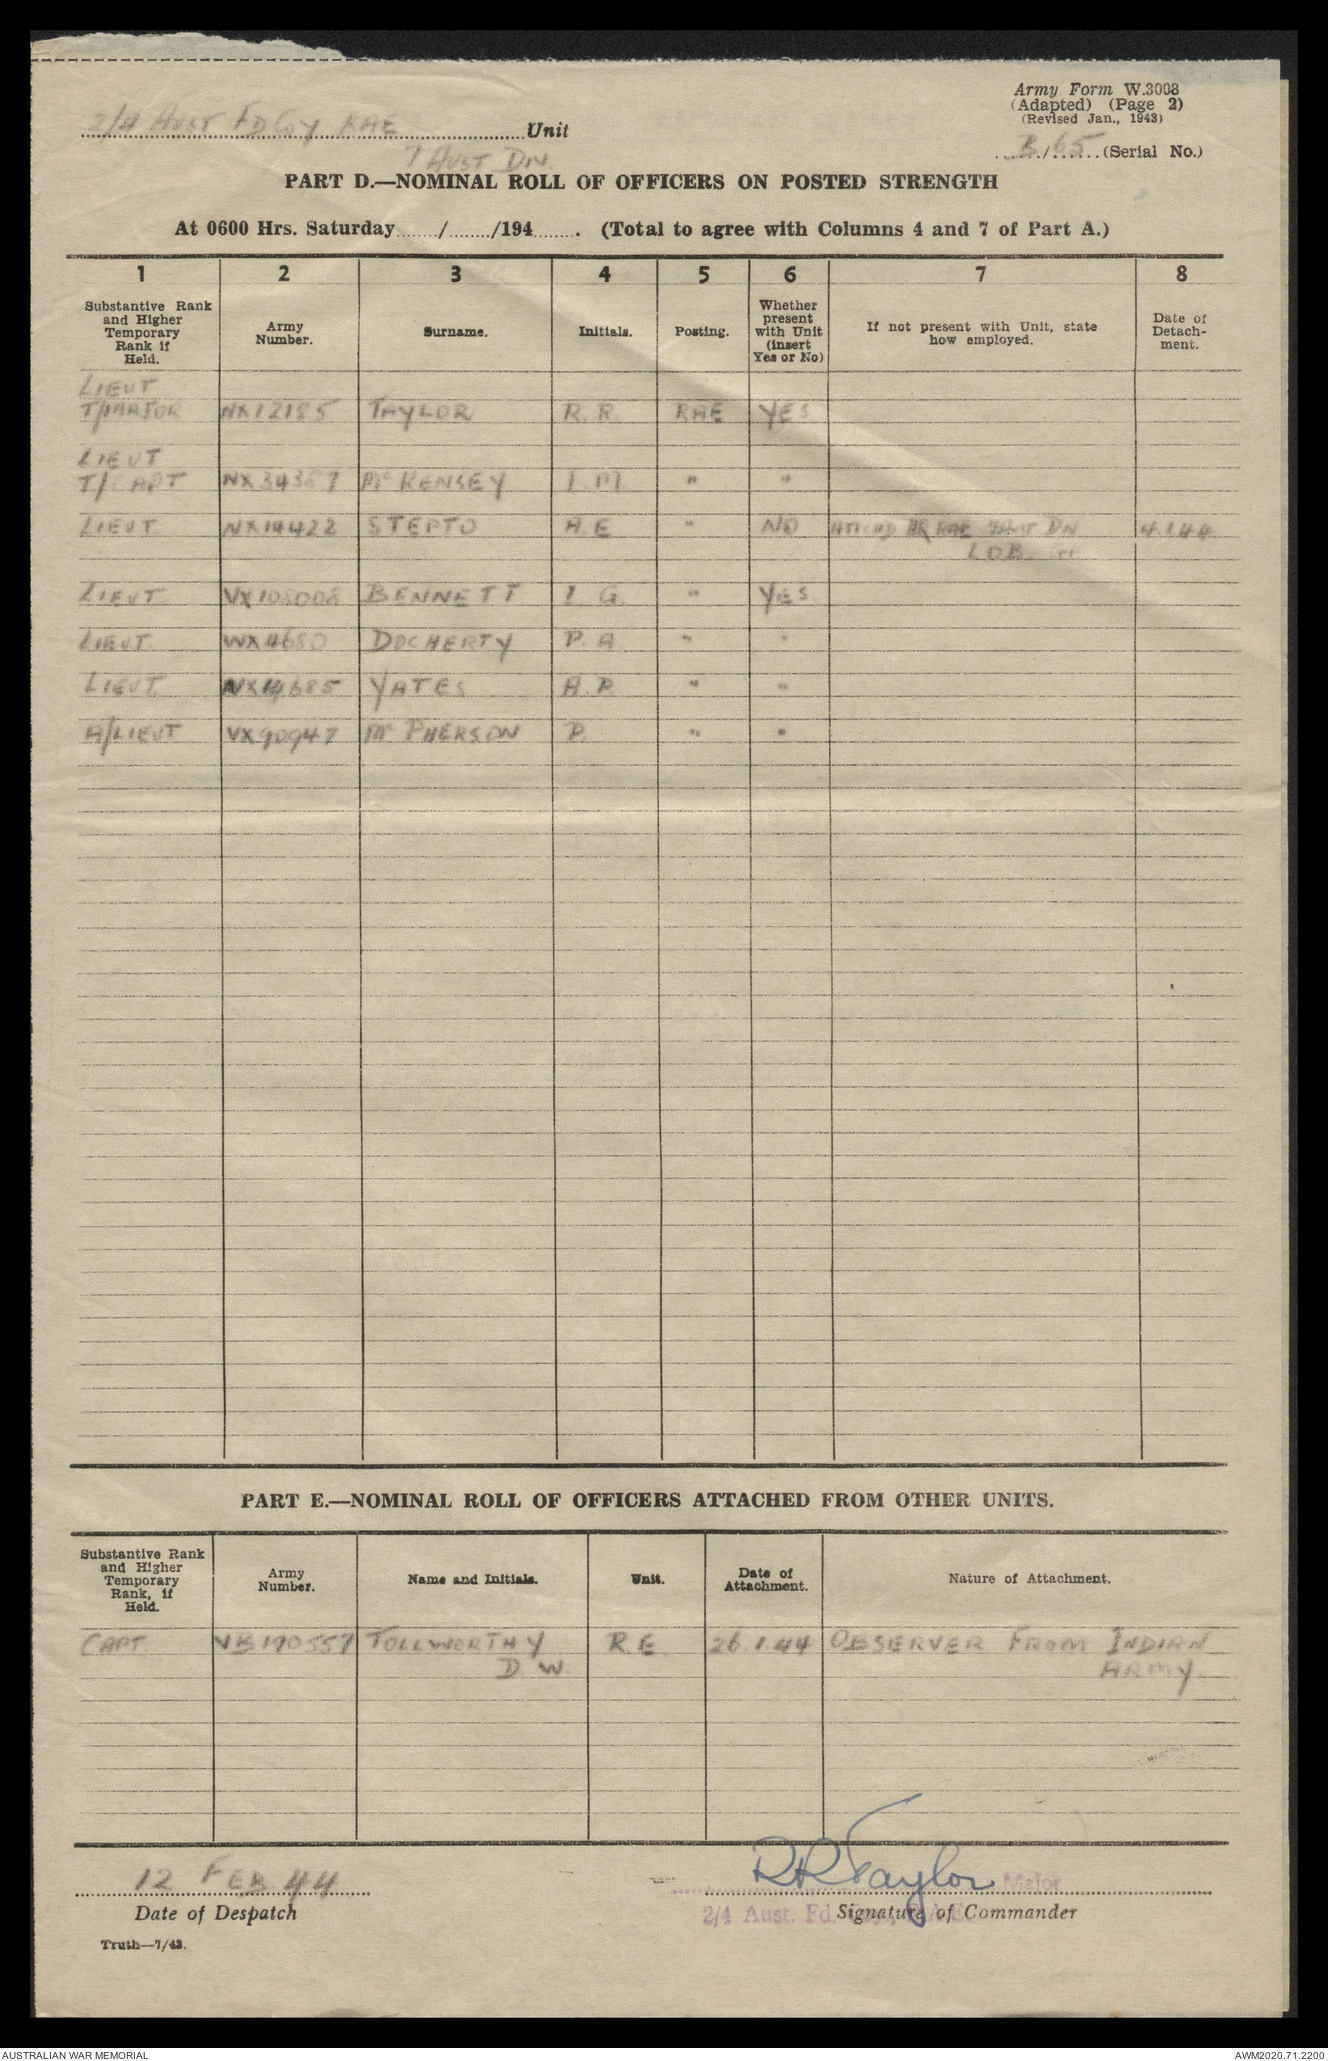 Army Form W.3008
(Adapted) (Page 2)
(Revised Jan., 1943)
2/4 AUST FD COY RAE Unit
7 AUST DN
B/65 (Serial No.)
PART D.—NOMINAL ROLL OF OFFICERS ON POSTED STRENGTH
At 0600 Hrs. Saturday......./......./194....... . (Total to agree with Columns 4 and 7 of Part A.)
1 2 3 4 5 6 7 8
Substantive Rank and Higher Temporary Rank if Held. Army Number. Surname. Initials. Posting. Whether present with Unit (insert Yes or No) If not present with Unit, state how employed. Date of Detach-ment.
LIEUT
T/MAJOR NX12185 TAYLOR R. R. RAE YES
LIEUT
T/CAPT NX34357 McKENSEY I M " "
LIEUT NX14422 STEPTO A. E " NO ATTCHD HQ RAE 7 AUST DN 4.1.44
L.O.B.
LIEUT VX108008 BENNETT I G. " YES
LIEUT WX4680 DOCHERTY P. A. " "
LIEUT NX14685 YATES A. P. " "
A/LIEUT VX90947 McPHERSON P. " "
PART E.—NOMINAL ROLL OF OFFICERS ATTACHED FROM OTHER UNITS.
Substantive Rank and Higher Temporary Rank, if Held. Army Number. Name and Initials. Unit. Date of Attachment. Nature of Attachment.
CAPT VB190557 TOLLWORTHY R. E 26.1.44 OBSERVER FROM INDIAN
D W. ARMY.
12 FEB 44
RRTaylor Major
Date of Despatch
2/4 Aust. Fd. Signature of Commander
Truth—7/43.
AUSTRALIAN WAR MEMORIAL
AWM2020.71.2200